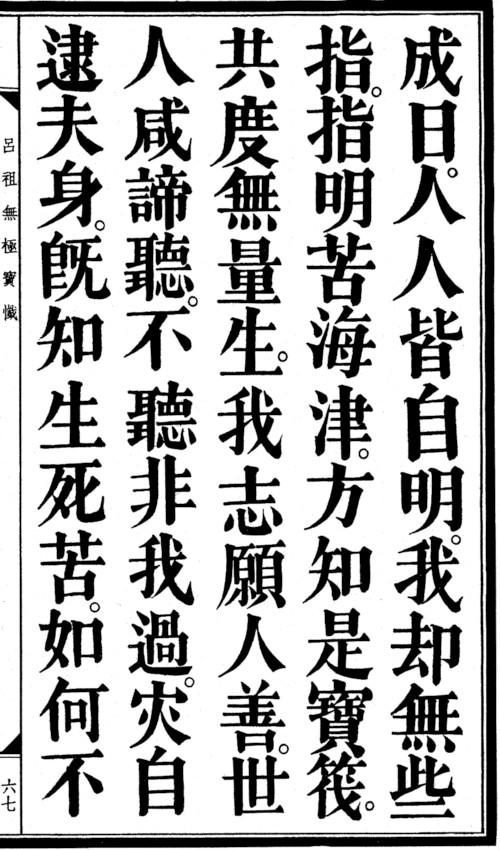 成日。人人皆自明。我却無些
指。指明苦海津。方知是寶筏。
共度無量生。我志願人善。世
人咸諦聽。不聽非我過。灾自
逮夫身。旣知生死苦。如何不
呂祖無極寶懺
六七